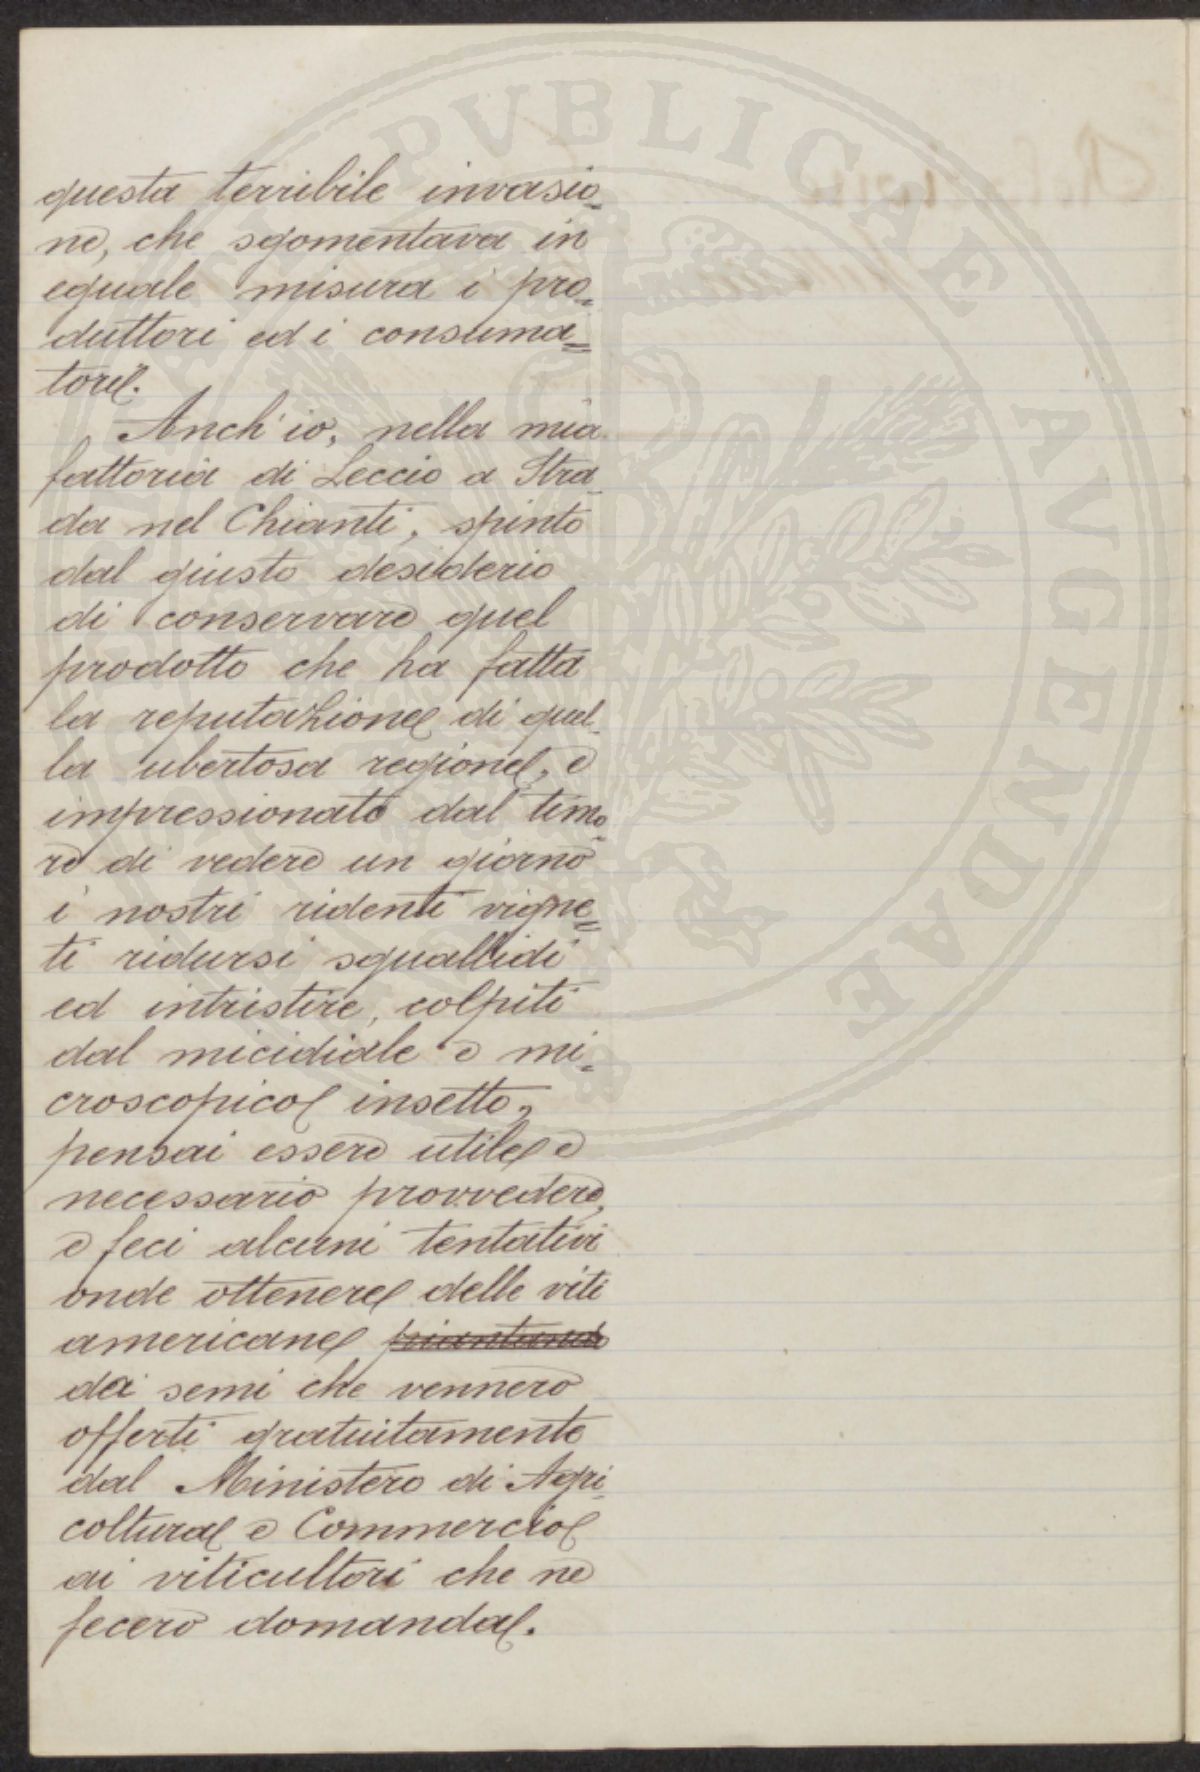 questa terribile invasio-
ne, che sgomentava in
eguale misura i pro=
duttori ed i consuma=
tori.
Anch'io, nella mia
fattoria di Leccio a Stra-
da nel Chianti, spinto
dal giusto desiderio
di conservare quel
prodotto che ha fatta
la reputazione di quel-
la ubertosa regione, e
impressionato dal timo-
re di vedere un giorno
i nostri ridenti vigne=
ti ridursi squallidi
ed intristire, colpiti
dal micidiale e mi=
croscopico insetto,
pensai essere utile e
necessario provvedere,
e feci alcuni tentativi
onde ottenere delle viti
americane piantando
dai semi che vennero
offerti gratuitamente
dal Ministero di Agri-
coltura e Commercio
ai viticultori che ne
fecero domanda.
PUBLICAE AVGENDAE